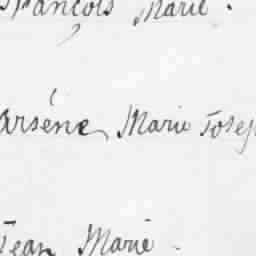 François Marie.
Arsène Marie Josep
Jean Marie.